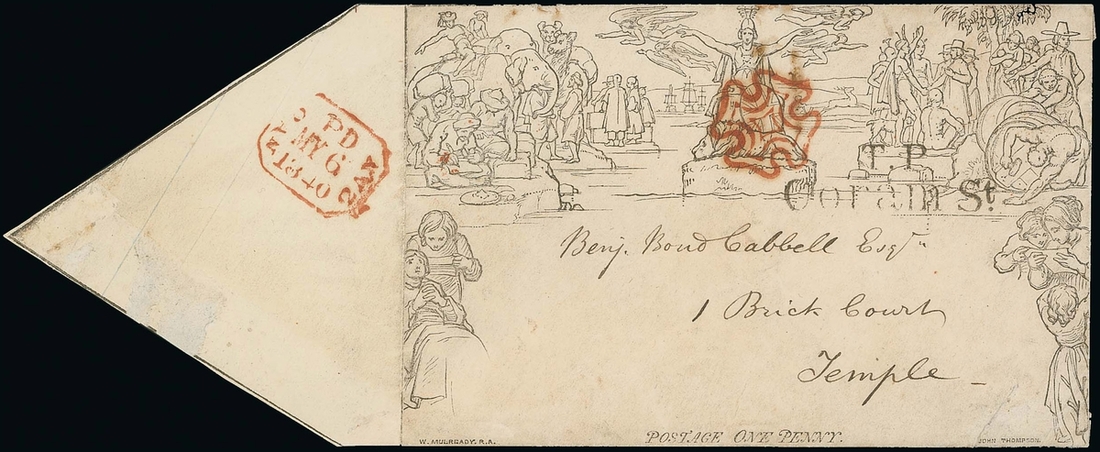 PD
MY 6
1840
T.P
Coram St.
Benj. Bond Cabbell Esqr
1 Brick Court
Temple
W. MULREADY, R.A.
POSTAGE ONE PENNY.
JOHN THOMPSON